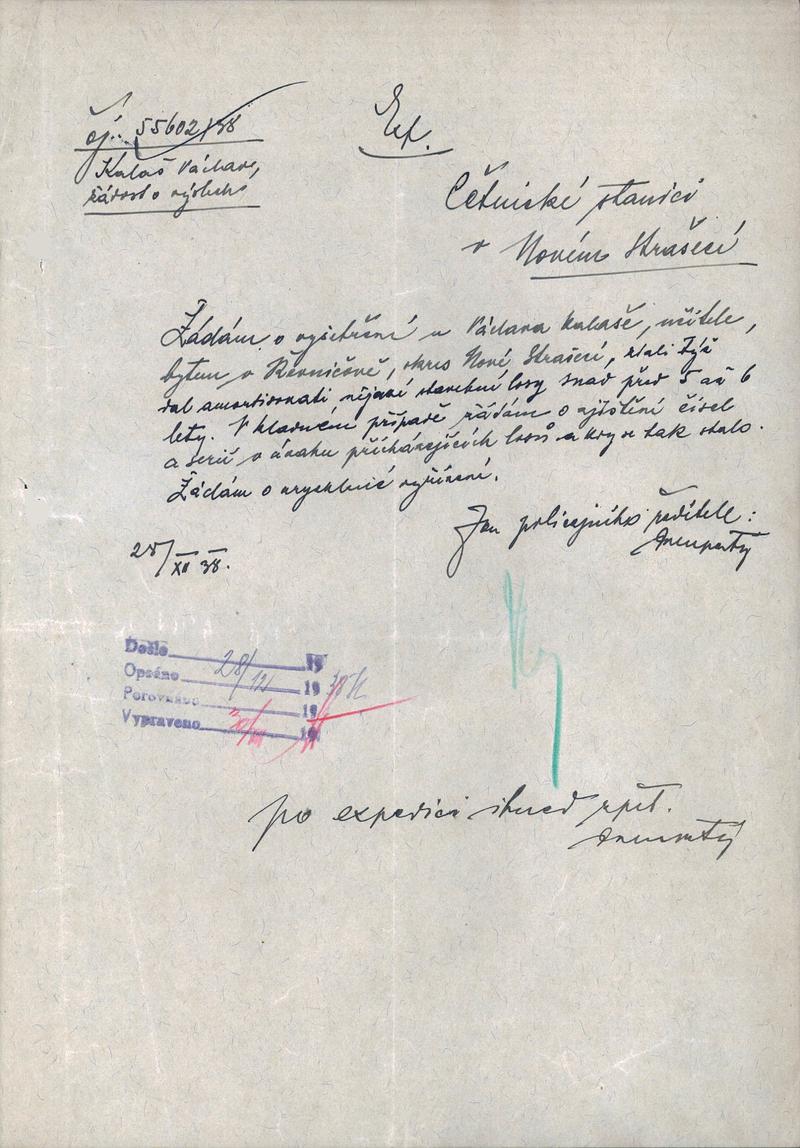 čj.: 55602/38
Kalaš Václav,
žádost o výslech
Ext.
Četnické stanici
v Novém Strašecí
Žádám o vyšetření u Václava Kalaše, učitele,
bytem v Řevničově, okres Nové Strašecí, zdali týž
dal amortisovati nějaké stavební losy snad před 5 až 6
lety. V kladném případě žádám o zjištění čísel
a serií v úvahu přicházejících losů a kdy se tak stalo.
Žádám o urychlené vyřízení.
Za policejního ředitele:
28/XII 38.
Došlo 19
Opsáno 28/12 19 38
Porovnáno 19
Vypraveno 19
po expedici ihned zpět.